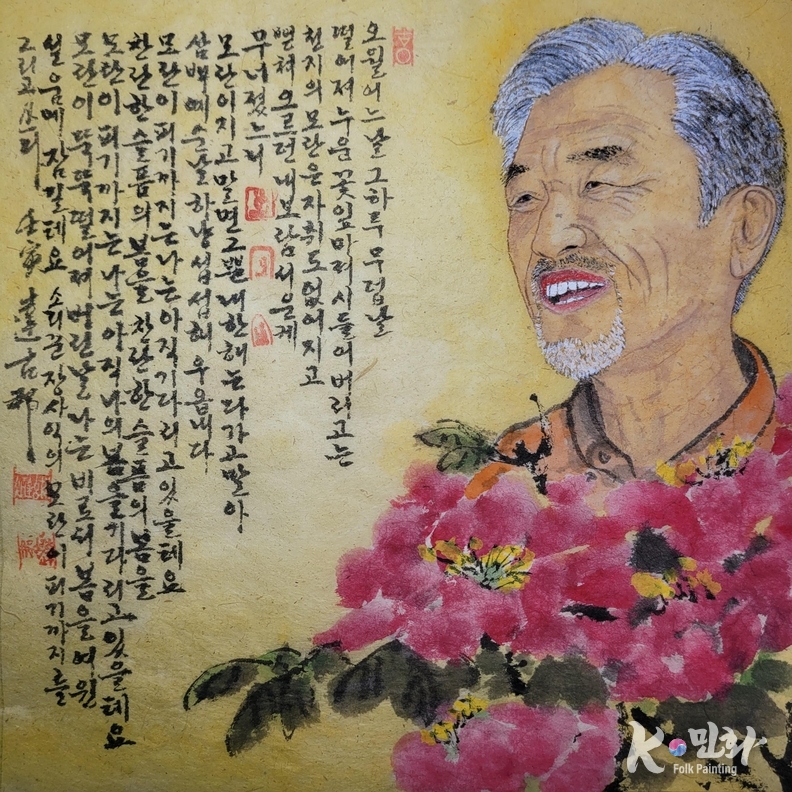 오월어느날 그하루 무덥날
떨어져누운 꽃잎마저시들어버리고는
천지의모란은자취도없어지고
뻗쳐오르던내보람서운케
무너졌느니
모란이지고말면그뿐내한해는다가고말아
삼백예순날하냥섭섭해우옵내다
모란이피기까지는나는아직기다리고있을테요
찬란한슬픔의봄을찬란한슬픔의봄을
모란이피기까지는나는아직나의봄을기다리고있을테요
모란이뚝뚝떨어져버린날나는비로소봄을여윈
설움에잠길테요 소리꾼장사익의모란이피기까지를
그리고 壬寅
K 민화
Folk Painting